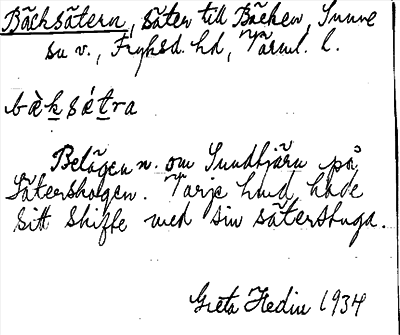 Bäcksätern, Säter till Bäcken, Sunne
sn v., Fryksd. hd, Värml. l.
bàksétra
Belägen n. om Sundtjärn på
Sätershogen. Varje hmd hade
sitt skifte med sin säterstuga.
Greta Hedin 1934